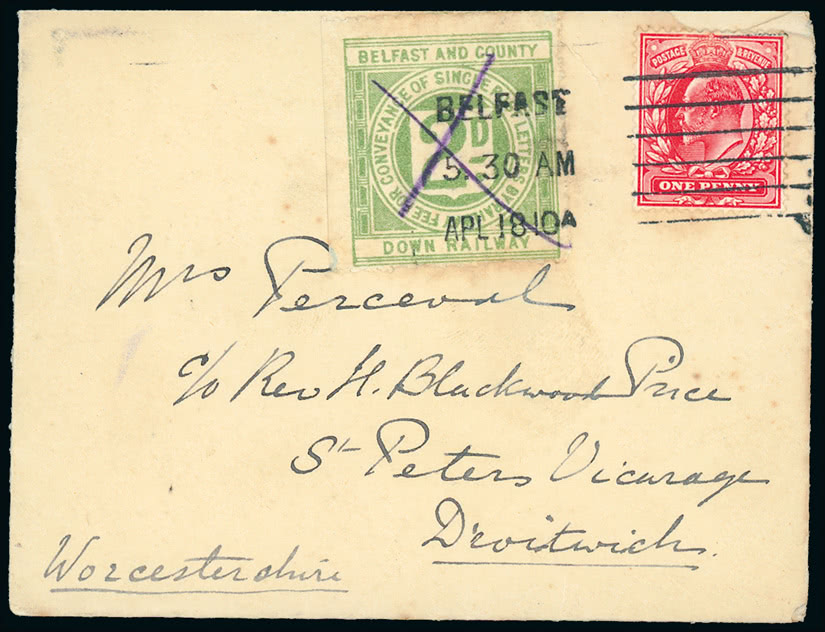 BELFAST AND COUNTY
FEE FOR CONVEYANCE OF SINGLE POST LETTERS BY RAILWAY
2D
DOWN RAILWAY
BELFAST
5.30 AM
APL 18 10 A
POSTAGE & REVENUE
ONE PENNY
Mrs Perceval
c/o Rev H. Blackwood Price
St Peters Vicarage
Droitwich.
Worcestershire